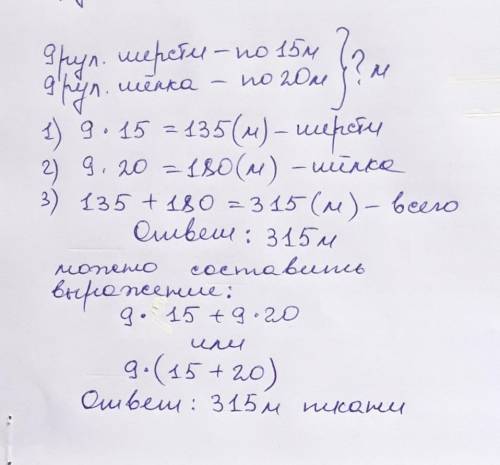 9 рул. шерсти – по 15м } ? м
9 рул. шёлка – по 20м
1) 9 · 15 = 135 (м) – шерсти
2) 9 · 20 = 180 (м) – шёлка
3) 135 + 180 = 315 (м) – всего
Ответ: 315м
можно составить
выражение:
9 · 15 + 9 · 20
или
9 · (15 + 20)
Ответ: 315м ткани